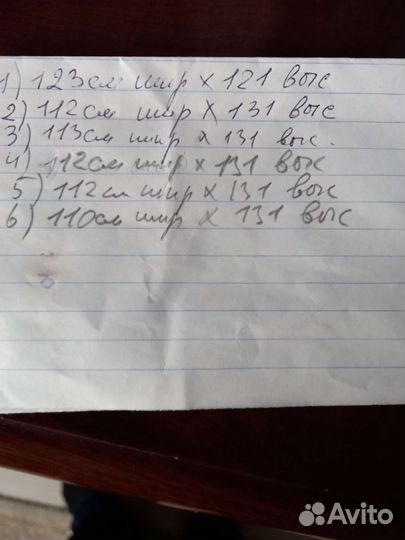 1) 123см шир х 121 выс
2) 112см шир х 131 выс
3) 113см шир х 131 выс.
4) 112см шир х 131 выс
5) 112см шир х 131 выс
6) 110см шир х 131 выс
Avito